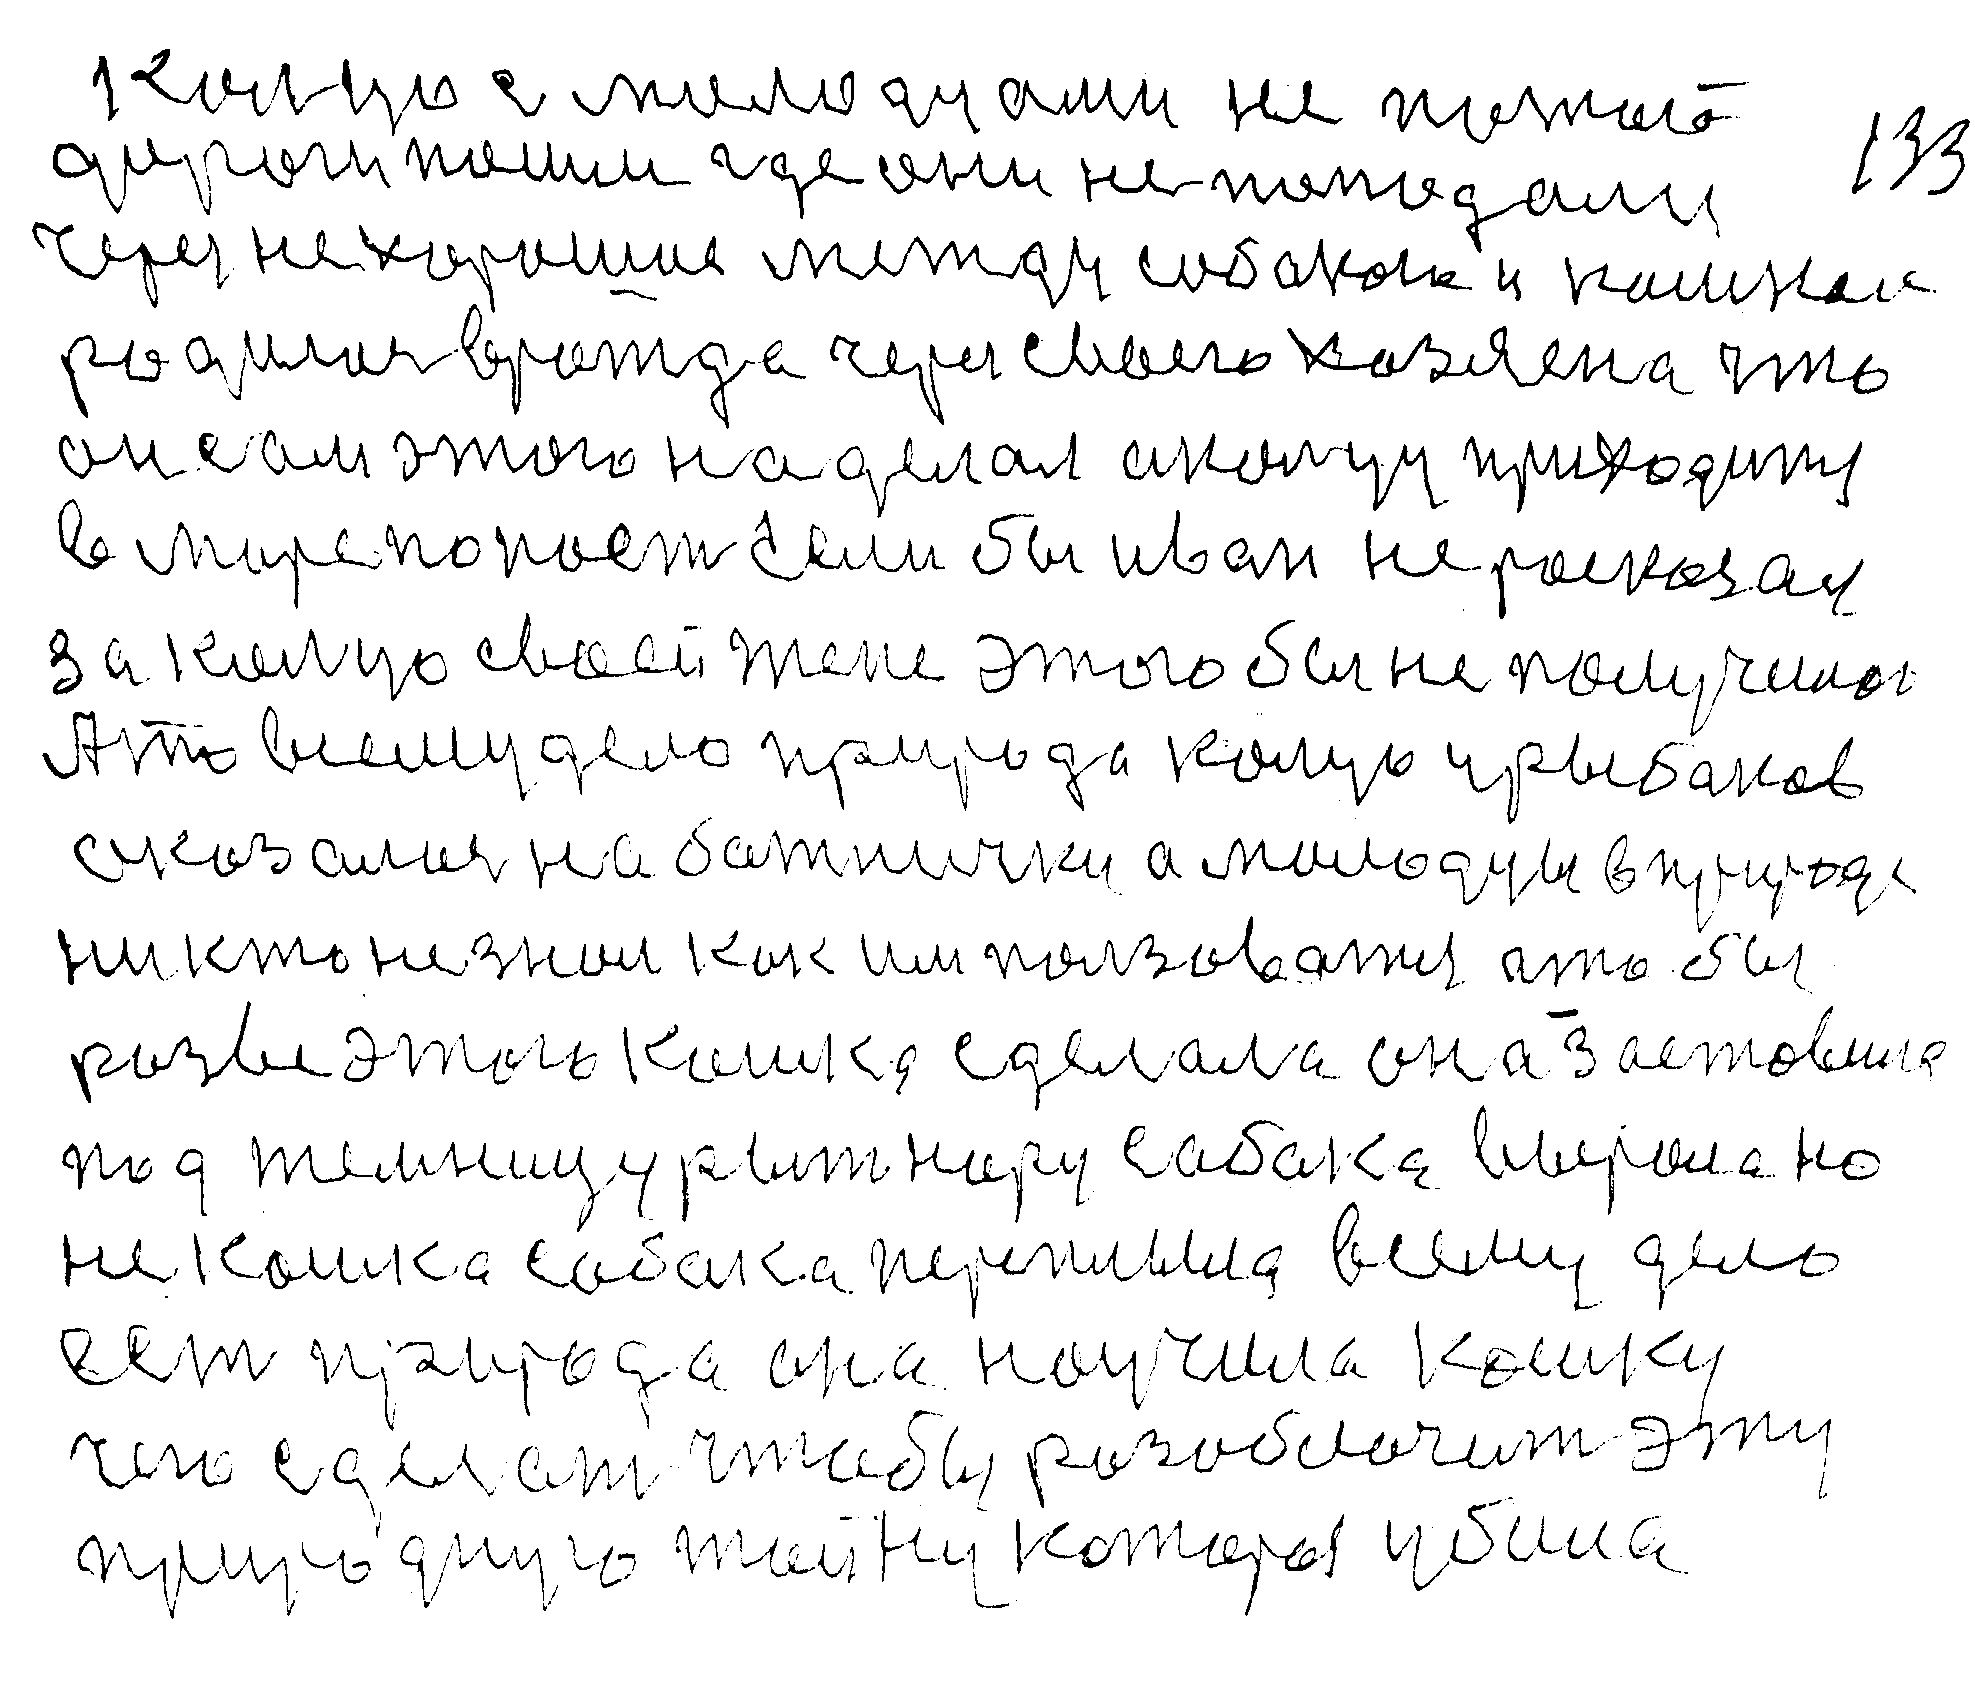 Колцо с молодцами не потой 133
дороги пошли где они не попадали
через не хорошое между собакой и кошкой
родилась вражда через своего хозяена что
он сам этого наделал а колцу приходится
в море попаст Если бы иван не росказал
за колцо своей жене этого бы не получилос
А то всему дело природа колцо у рыбаков
оказалося на батничку а молодцы в природе
никто не знал как им ползоватся что бы
разве этого кошка сделала она заставила
под темницу рыт нору собака вырола но
не кошка собака переплыла всему дело
ест природа она научила кошку
чего сделат чтобы разоблачит эту
природную тайну которая убила